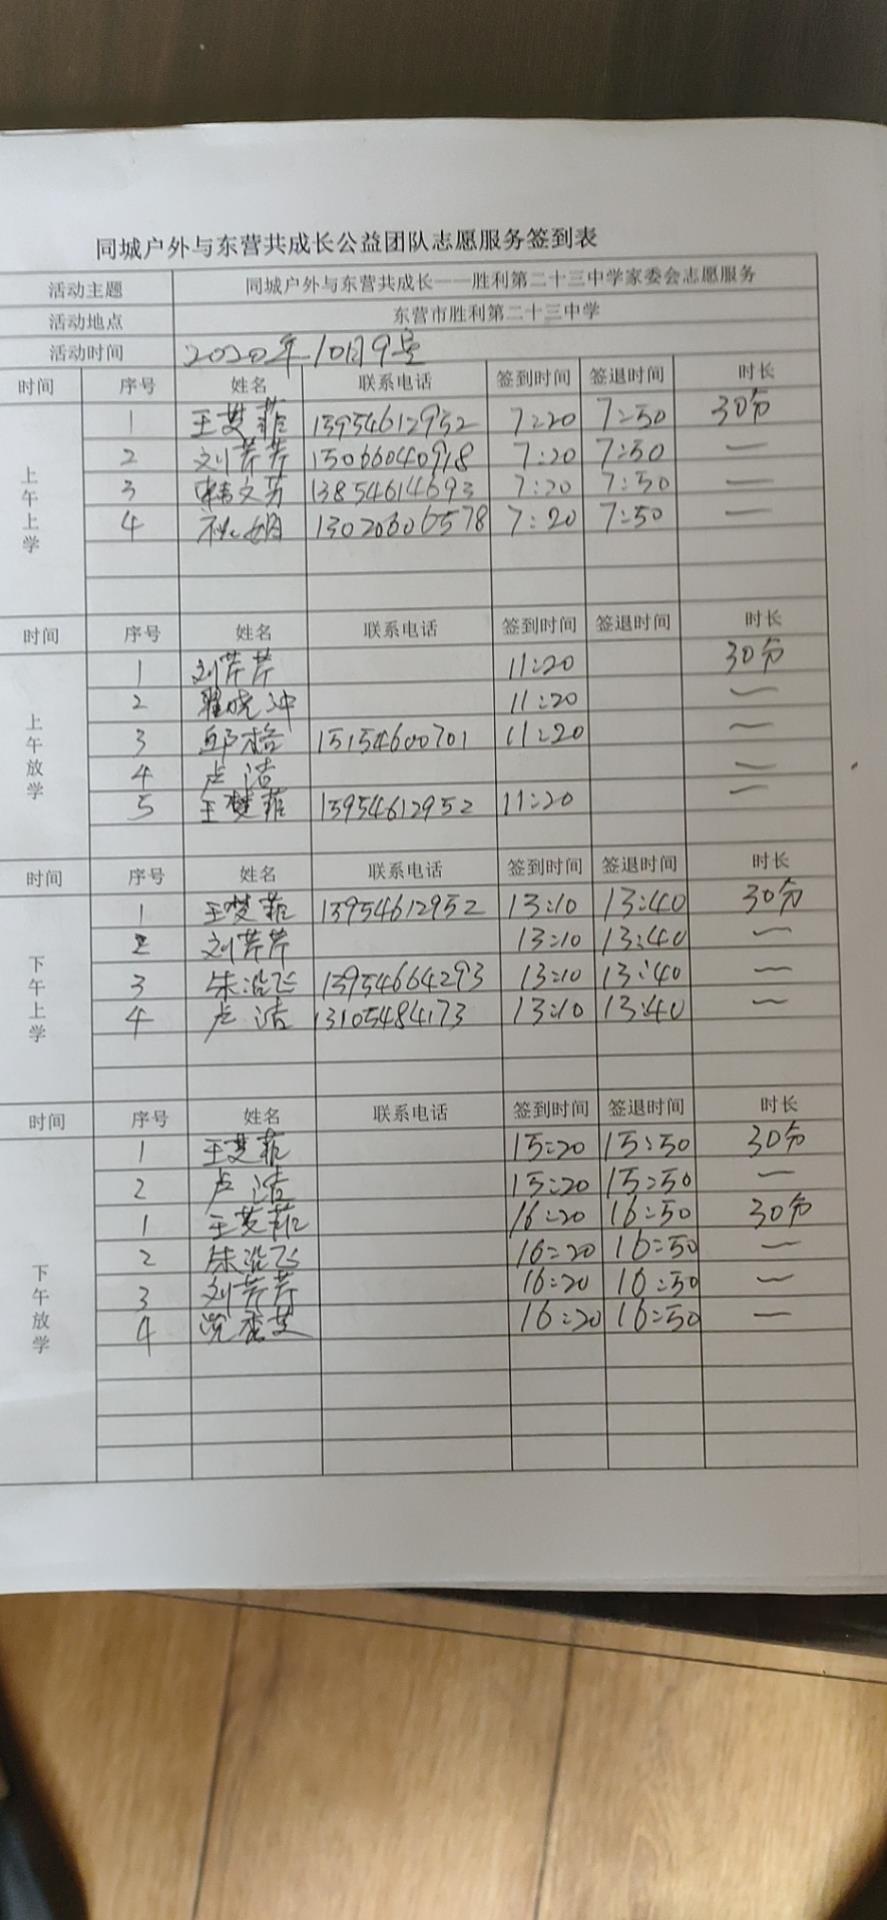 同城户外与东营共成长公益团队志愿服务签到表
活动主题 同城户外与东营共成长——胜利第二十三中学家委会志愿服务
活动地点 东营市胜利第二十三中学
活动时间 2020年10月9号
时间 序号 姓名 联系电话 签到时间 签退时间 时长
上午上学
1 王梦菲 13954612952 7:20 7:50 30分
2 刘芹芹 15066040918 7:20 7:50 —
3 韩文芳 13854614693 7:20 7:50 —
4 姚娟 13020606578 7:20 7:50 —
时间 序号 姓名 联系电话 签到时间 签退时间 时长
上午放学
1 刘芹芹 11:20 30分
2 翟晓冲 11:20 —
3 邱格 15154600701 11:20 —
4 卢洁 —
5 王梦菲 13954612952 11:20 —
时间 序号 姓名 联系电话 签到时间 签退时间 时长
下午上学
1 王梦菲 13954612952 13:10 13:40 30分
2 刘芹芹 13:10 13:40 —
3 朱浩飞 13954664293 13:10 13:40 —
4 卢洁 13105484173 13:10 13:40 —
时间 序号 姓名 联系电话 签到时间 签退时间 时长
下午放学
1 王梦菲 15:20 15:50 30分
2 卢洁 15:20 15:50 —
1 王梦菲 16:20 16:50 30分
2 朱浩飞 16:20 16:50 —
3 刘芹芹 16:20 16:50 —
4 16:20 16:50 —